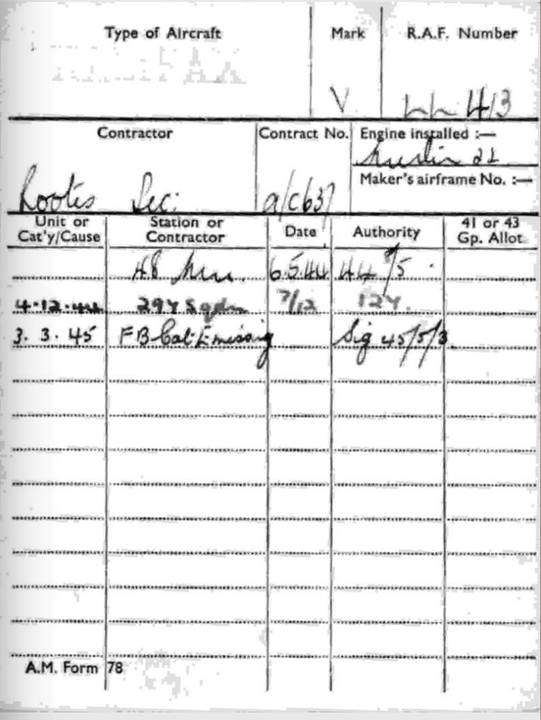 Type of Aircraft Mark R.A.F. Number
V LL 413
Contractor Contract No. Engine installed :—
Merlin 22
Maker's airframe No. :—
Rootes Sec: a/c637
Unit or Cat'y/Cause Station or Contractor Date Authority 41 or 43 Gp. Allot.
48 Mu 6.5.44 44 8/5
4.12.44 297 Sqdn 7/12 127.
3.3.45 FB Cat: E missing Sig 45/5/3
A.M. Form 78